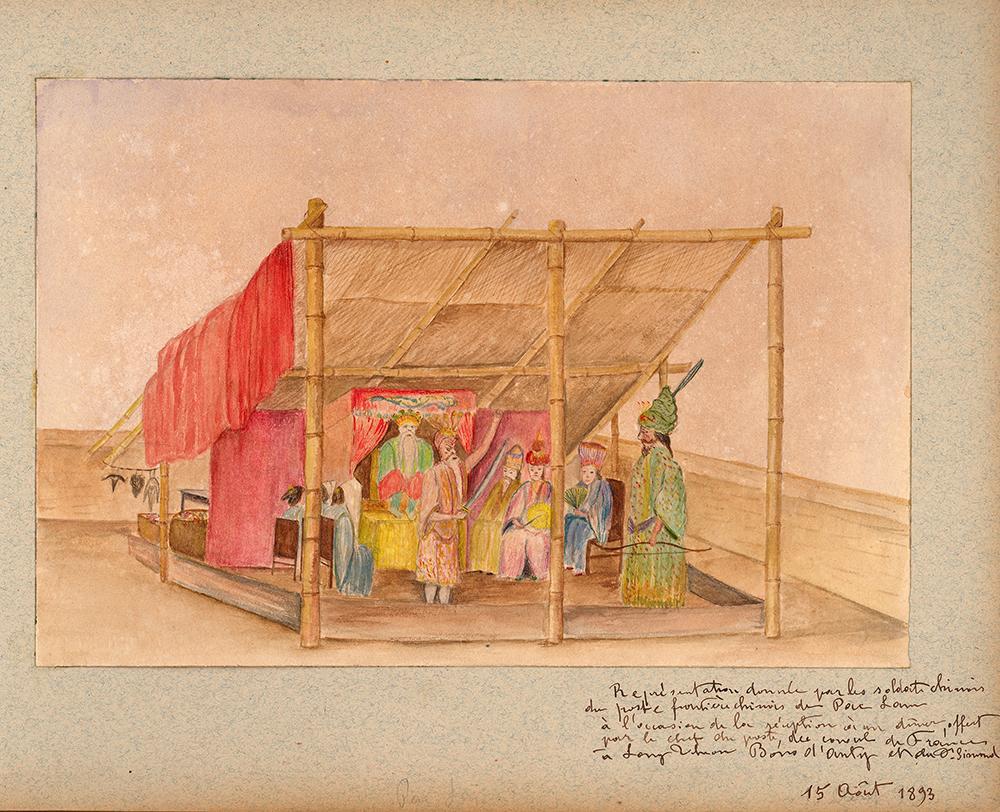 Représentation donnée par les soldats chinois
du poste frontière chinois de Pac Lam
à l'occasion de la réception à un dîner offert
par le chef du poste, des consul de France
à Long Bons d'Anty et du Dr Simond
15 Août 1893